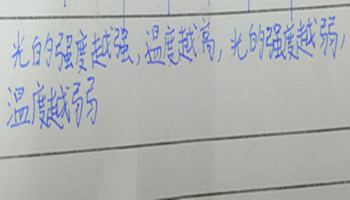 光的强度越强，温度越高，光的强度越弱，
温度越弱